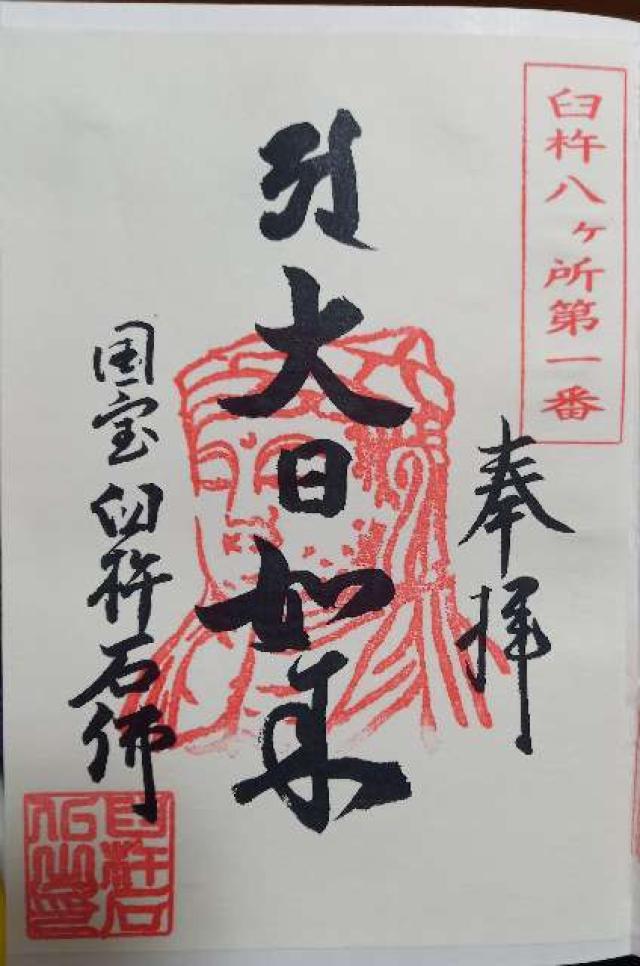 臼杵八ヶ所第一番
奉拝
大日如来
国宝臼杵石佛
臼杵石仏之印